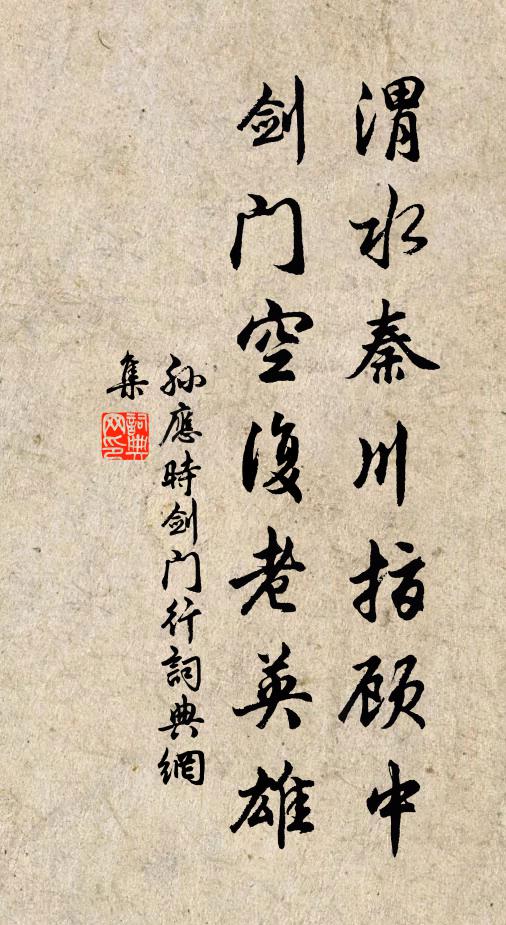 渭水秦川指顾中
剑门空复老英雄
孙應時剑门行詞典網
集
詞典
网印